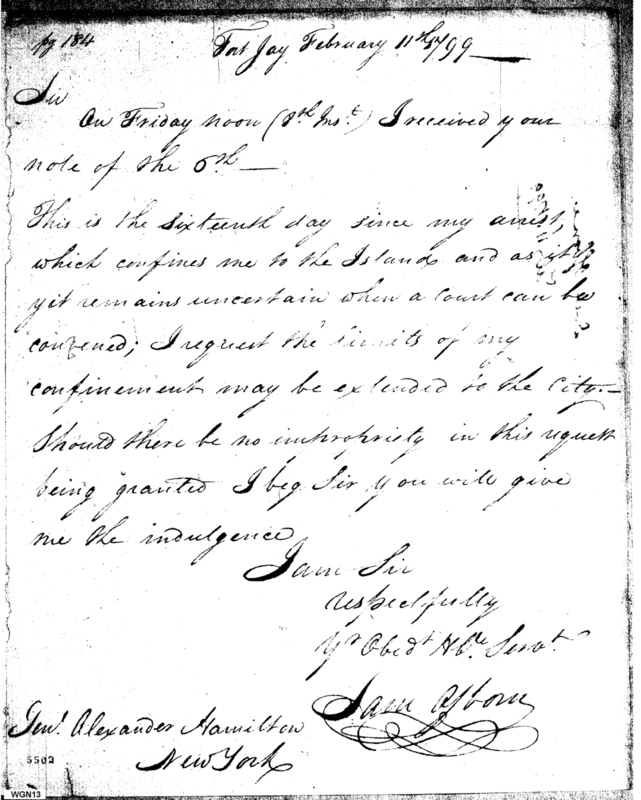 pg 184
Fort Jay February 11th 1799
Sir
On Friday noon (8th Inst.) I received your
note of the 6th —
This is the sixteenth day since my arrest,
which confines me to the Island and as it
yet remains uncertain when a Court can be
convened; I request the limits of my
confinement may be extended to the City.—
Should there be no impropriety in this request
being granted I beg Sir you will give
me the indulgence
I am Sir
respectfully
Yr Obedt Hble Servt.
Sam Osborn
Genl. Alexander Hamilton
New York
5502
WGN13